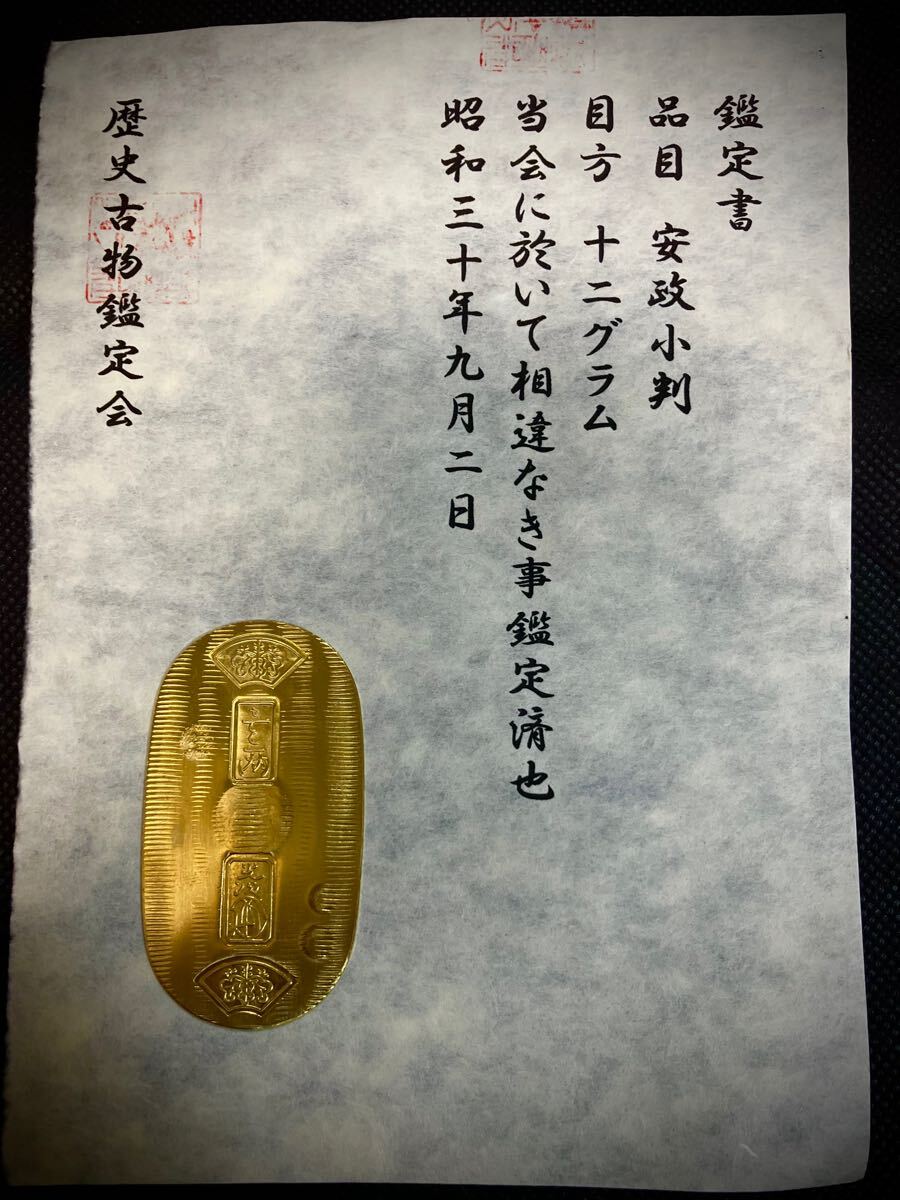 鑑定書
品目 安政小判
目方 十二グラム
当会に於いて相違なき事鑑定済也
昭和三十年九月二日
歴史古物鑑定会